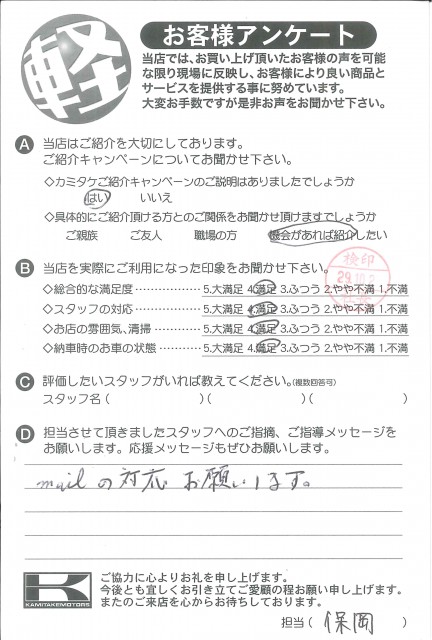 軽
お客様アンケート
当店では、お買い上げ頂いたお客様の声を可能
な限り現場に反映し、お客様により良い商品と
サービスを提供する事に努めています。
大変お手数ですが是非お声をお聞かせ下さい。
A 当店はご紹介を大切にしております。
ご紹介キャンペーンについてお聞かせ下さい。
◇カミタケご紹介キャンペーンのご説明はありましたでしょうか
はい いいえ
◇具体的にご紹介頂ける方とのご関係をお聞かせ頂けますでしょうか
ご親族 ご友人 職場の方 機会があれば紹介したい
検印
29.10.2
B 当店を実際にご利用になった印象をお聞かせ下さい。
◇総合的な満足度 5.大満足 4.満足 3.ふつう 2.やや不満 1.不満
◇スタッフの対応 5.大満足 4.満足 3.ふつう 2.やや不満 1.不満
◇お店の雰囲気、清掃 5.大満足 4.満足 3.ふつう 2.やや不満 1.不満
◇納車時のお車の状態 5.大満足 4.満足 3.ふつう 2.やや不満 1.不満
C 評価したいスタッフがいれば教えてください。(複数回答可)
スタッフ名( )( )( )
D 担当させて頂きましたスタッフへのご指摘、ご指導メッセージを
お願いします。応援メッセージもぜひお願いします。
mailの対応お願いします。
K
KAMITAKEMOTORS
ご協力に心よりお礼を申し上げます。
今後とも宜しくお引き立てご愛顧の程お願い申し上げます。
またのご来店を心からお待ちしております。
担当( 保岡 )